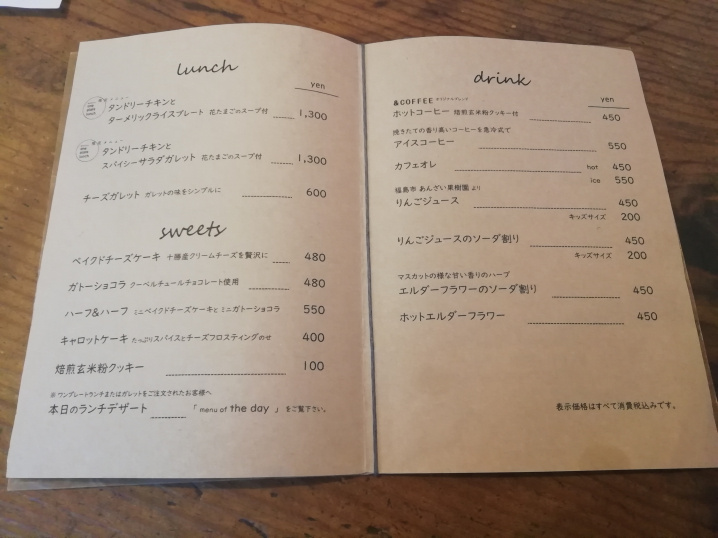 lunch
yen
タンドリーチキンと
ターメリックライスプレート 花たまごのスープ付 1,300
タンドリーチキンと
スパイシーサラダガレット 花たまごのスープ付 1,300
チーズガレット ガレットの味をシンプルに 600
sweets
ベイクドチーズケーキ 十勝産クリームチーズを贅沢に 480
ガトーショコラ クーベルチュールチョコレート使用 480
ハーフ&ハーフ ミニベイクドチーズケーキと ミニガトーショコラ 550
キャロットケーキ たっぷりスパイスとチーズフロスティングのせ 400
焙煎玄米粉クッキー 100
※ ワンプレートランチまたはガレットをご注文されたお客様へ
本日のランチデザート 「 menu of the day 」 をご覧下さい。
drink
yen
&COFFEE オリジナルブレンド
ホットコーヒー 焙煎玄米粉クッキー付 450
焼きたての香り高いコーヒーを急冷式で
アイスコーヒー 550
カフェオレ hot 450
ice 550
福島市 あんざい果樹園 より
りんごジュース 450
キッズサイズ 200
りんごジュースのソーダ割り 450
キッズサイズ 200
マスカットの様な甘い香りのハーブ
エルダーフラワーのソーダ割り 450
ホットエルダーフラワー 450
表示価格はすべて消費税込みです。